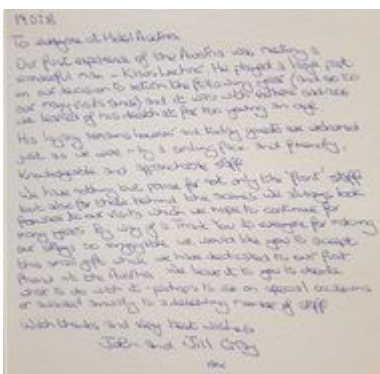 To everyone at Hotel Austria
Our first experience of the Austria was meeting a
wonderful man - He played a large part
in our decision to return the following year (and so too
our many visits since) and it was with extreme sadness
we learned of his death at far too young an age
His legacy remains however and today guests are welcomed
just as we were - by a smiling face and friendly,
knowledgeable and approachable staff
We have nothing but praise for not only the "front" staff
but also for those behind the scenes. We always look
forward to our visits which we hope to continue for
many years. By way of a thank you to everyone for making
our stays so enjoyable we would like you to accept
this small gift which we have dedicated to our first
friend at the Austria. We leave it to you to decide
what to do with it - perhaps to use on special occasions
or award annually to a deserving member of staff
With thanks and very best wishes
John and Jill